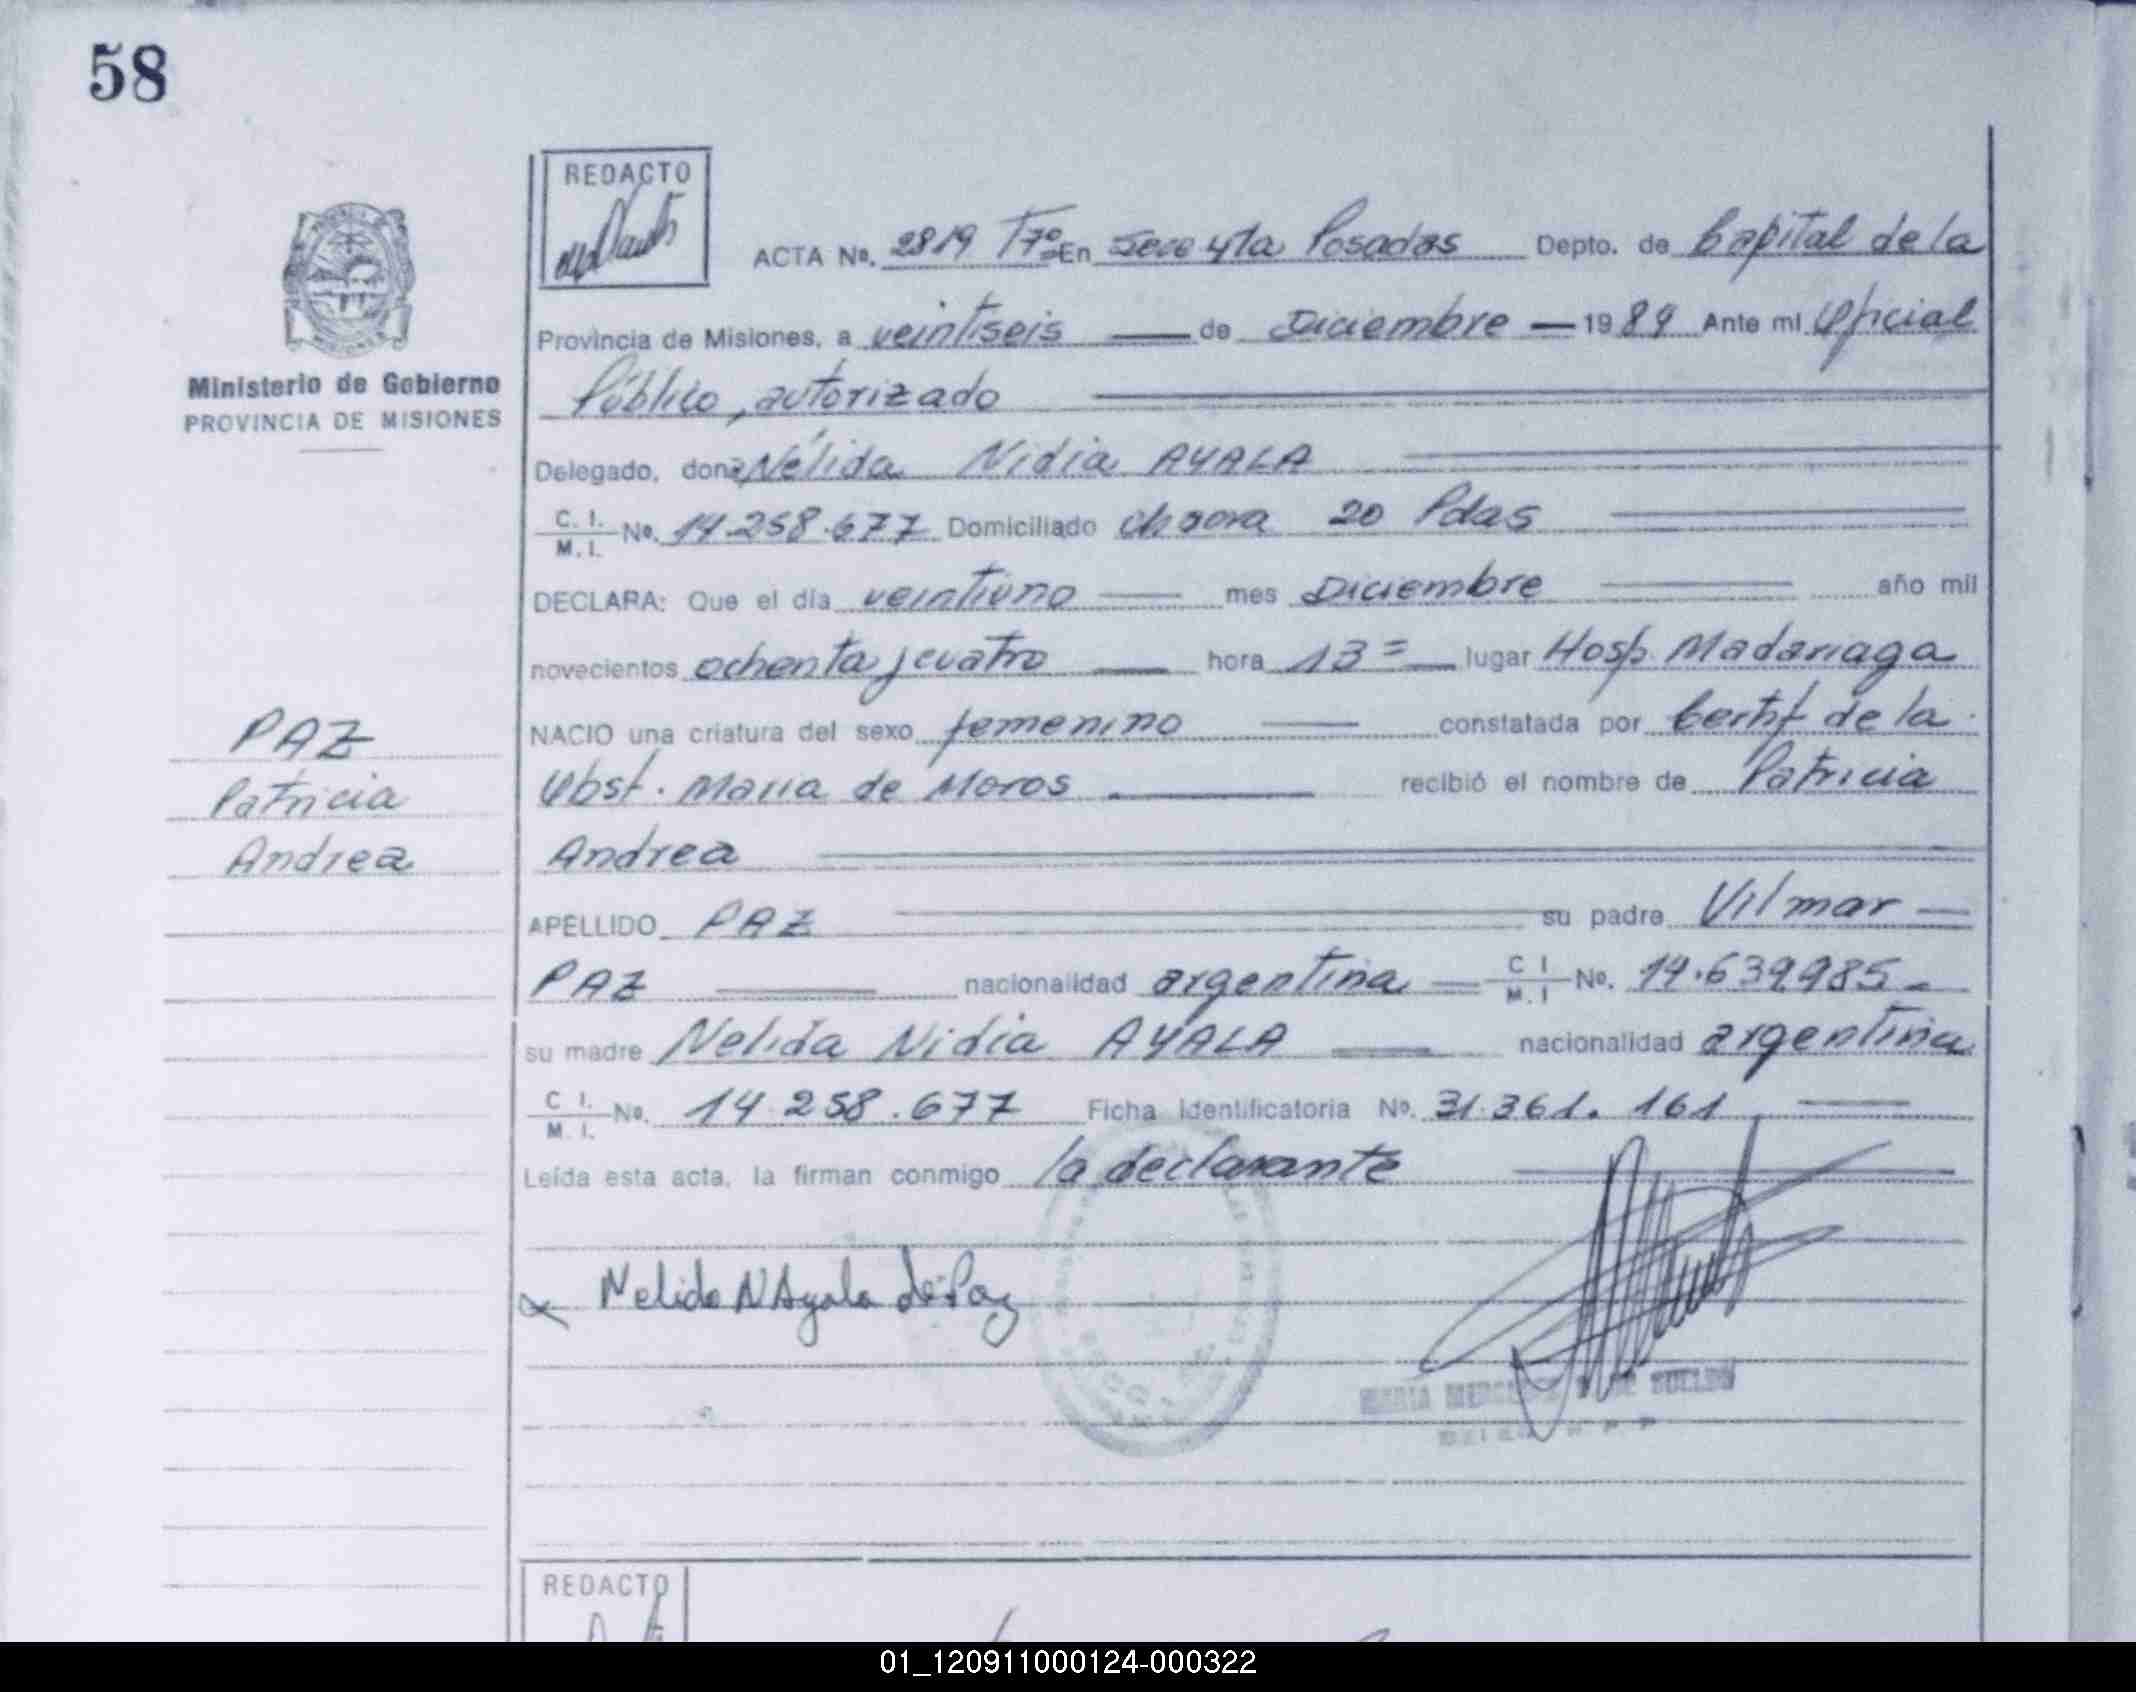 58
REDACTO
ACTA No. 2819 Tº7º En Secc 4ta Posadas Depto. de Capital de la
Ministerio de Gobierno
PROVINCIA DE MISIONES
Provincia de Misiones, a veintiseis — de Diciembre — 1989 Ante mi Oficial
Público, autorizado
Delegado, doña Nélida Nidia AYALA
C. I. / M. I. No. 14.258.677 Domiciliado chacra 20 Pdas
DECLARA: Que el día veintiuno — mes Diciembre año mil
novecientos ochenta y cuatro — hora 13 = lugar Hosp. Madariaga
NACIO una criatura del sexo femenino — constatada por Certif de la
Obst. Maria de Moros — recibió el nombre de Patricia
Andrea
PAZ
Patricia
Andrea
APELLIDO PAZ su padre Vilmar —
PAZ — nacionalidad argentina — C I / M. I No. 14.639985 -
su madre Nelida Nidia AYALA — nacionalidad argentina
C I. / M. I. No. 14.258.677 Ficha Identificatoria No. 31.361.161 —
Leída esta acta, la firman conmigo la declarante
x Nelida N Ayala de Paz
MARIA DE SUELDO
REDACTO
01_120911000124-000322